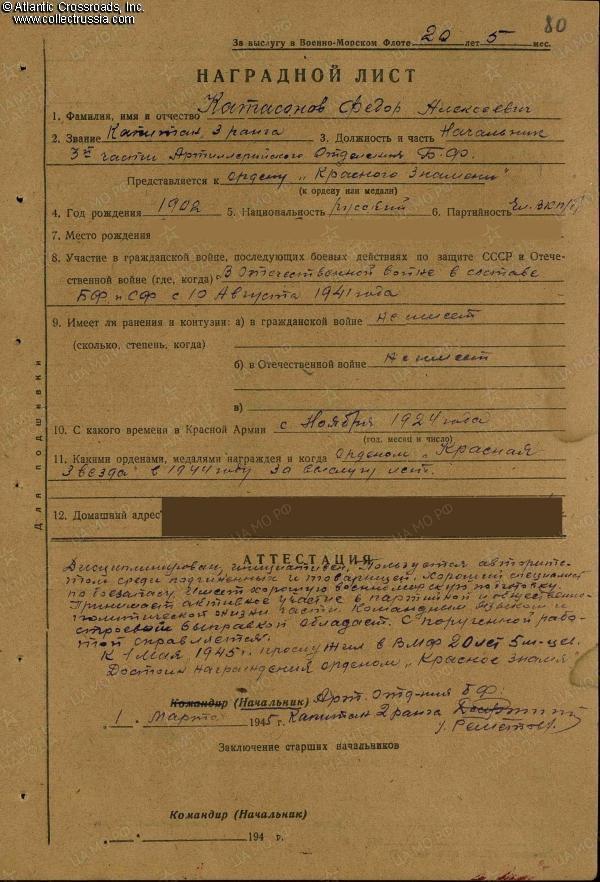 © Atlantic Crossroads, Inc.
www.collectrussia.com
80
За выслугу в Военно-Морском Флоте 20 лет 5 мес.
НАГРАДНОЙ ЛИСТ
1. Фамилия, имя и отчество Катасонов Федор Алексеевич
2. Звание Капитан 3 ранга 3. Должность и часть Начальник
3й части Артиллерийского Отделения Б.Ф.
Представляется к ордену „Красного Знамени"
(к ордену или медали)
4. Год рождения 1902 5. Национальность русский 6. Партийность Чл. ВКП(б)
7. Место рождения
8. Участие в гражданской войне, последующих боевых действиях по защите СССР и Отече-
ственной войне (где, когда) В Отечественной войне в составе
БФ и СФ с 10 Августа 1941 года
9. Имеет ли ранения и контузии: а) в гражданской войне Не имеет
(сколько, степень, когда)
б) в Отечественной войне Не имеет
в)
10. С какого времени в Красной Армии с Ноября 1924 года
(год, месяц и число)
11. Какими орденами, медалями награжден и когда орденом „Красная
Звезда" в 1944 году за выслугу лет.
12. Домашний адрес
Для подшивки
АТТЕСТАЦИЯ
Дисциплинирован, инициативен. Пользуется авторите-
том среди подчиненных и товарищей. Хороший специалист
по боезапасу. Имеет хорошую военноморскую подготовку.
Принимает активное участие в партийной и общественно-
политической жизни части. Командным языком и
строевой выправкой обладает. С порученной рабо-
той справляется.
К 1 мая 1945 г. прослужил в ВМФ 20 лет 5 м-цев.
Достоин награждения орденом „Красное Знамя"
Командир (Начальник) Арт. Отд-ния БФ.
1 Марта 1945 г. Капитан 2 ранга
Заключение старших начальников
Командир (Начальник)
194 г.
ЦА МО РФ